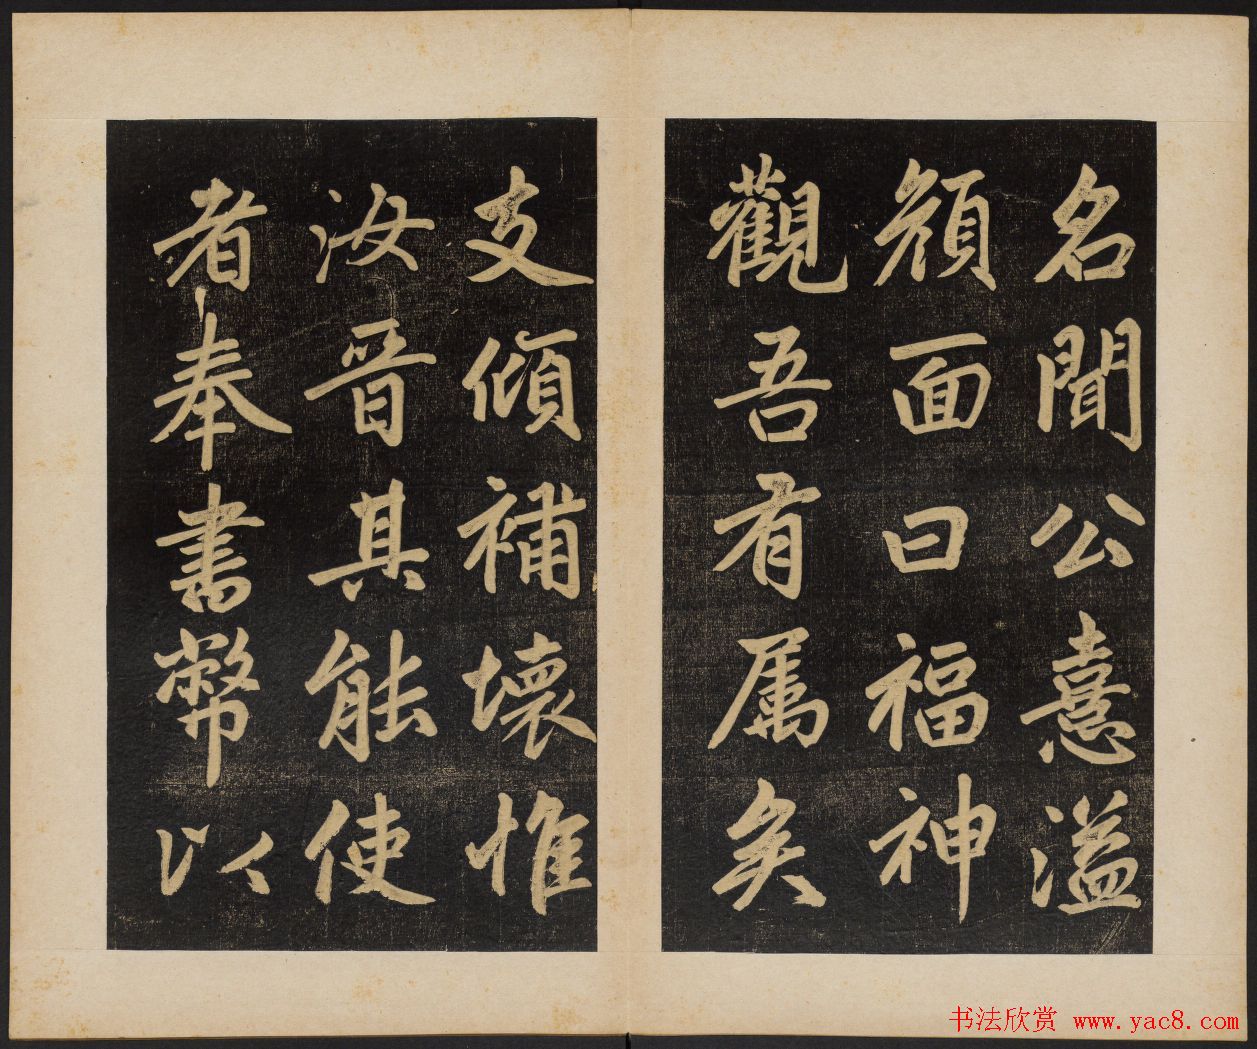 名聞公憙溢
顔面曰福神
觀吾有属矣
支傾補壞惟
汝晉其能使
者奉書幣以
书法欣赏 www.yac8.com